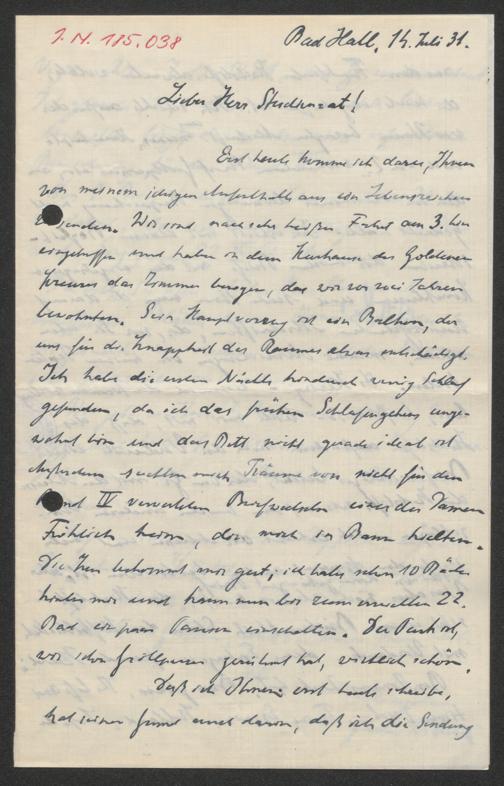 I. N. 185.038
Bad Hall, 14. Juli 31.
Lieber Herr Studienrat!
Erst heute komme ich dazu, Ihnen
von meinem jetzigen Aufenthalt aus ein Lebenszeichen
senden. Wir sind nach sehr heißer Fahrt am 3. hier
eingetroffen und haben in dem Kurhause des Goldenen
Kreuzes das Zimmer bezogen, das wir vor zwei Jahren
bewohnten. Sein Hauptvorzug ist ein Balkon, der
uns für die Knappheit des Raumes etwas entschädigt.
Ich habe die ersten Nächte hindurch wenig Schlaf
gefunden, da ich das frühen Schlafengehens unge-
wohnt bin und das Bett nicht gerade ideal ist
Außerdem suchten mich Träume von nicht für den
Band IV verwerteten Briefwechseln einer der Damen
Fröhlich heim, die mich in Bann hielten.
Die Kur bekommt mir gut; ich habe schon 10 Bäder
hinter mir und kann nun bis zum 22.
Bad ein paar Pausen einschalten. Der Park ist,
wie schon Grillparzer gerühmt hat, wirklich schön.
Daß ich Ihnen erst heute schreibe,
hat seinen Grund auch darin, daß ich die Sendung